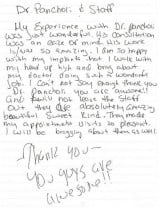 Dr. Panchali & Staff
My Experience with Dr. Panchali
was just wonderful. His consultation
was an ease of mind. His work
is/was so amazing. I am so happy
with my implants that I walk with
my head up high and brag about
my doctor doing such a wonderful
job. I can't not say enough thank you
Dr. Panchali you are awesome!!
And can't not leave the staff
out they are absolutely amazing
beautiful sweet kind. They made
my appointment visits so pleasant.
I will be bragging about them as well.
Thank you~
You guys are
awesome!!